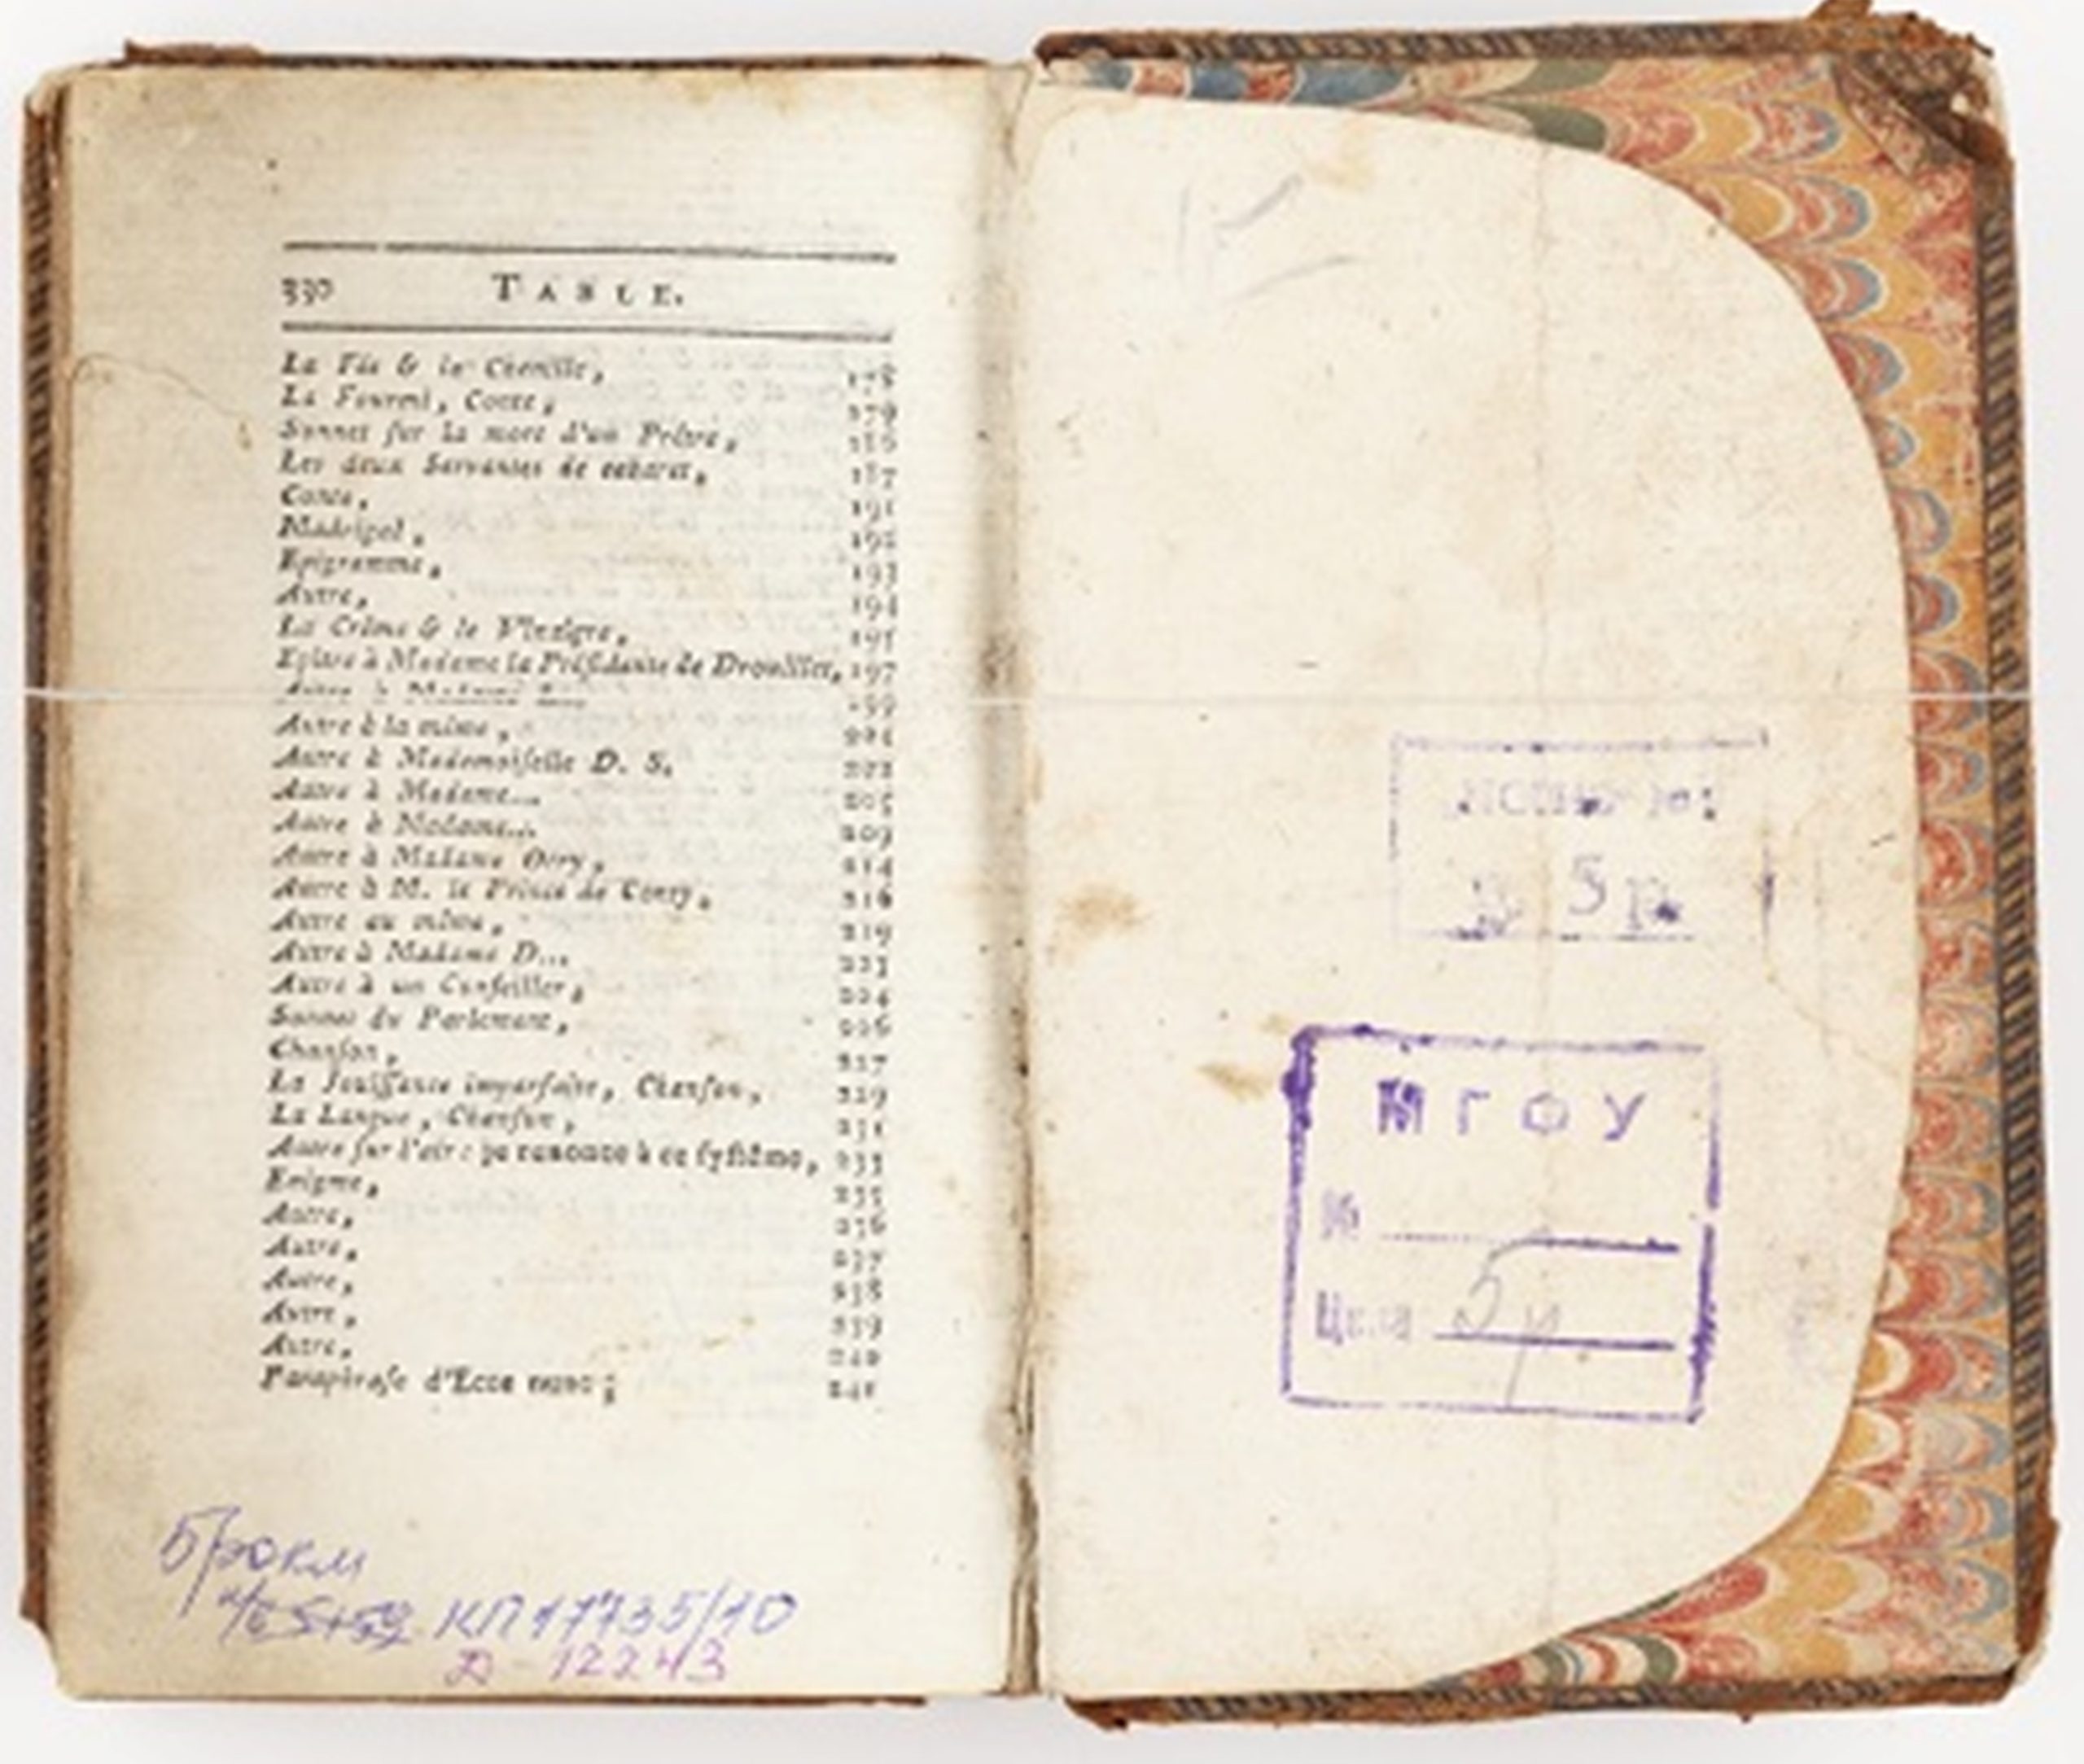 330 TABLE.
La Fée & la Chenille, 178
La Fourmi, Conte, 179
Sonnet ſur la mort d'un Prêtre, 186
Les deux Servantes de cabaret, 187
Conte, 191
Madrigal, 192
Epigramme, 193
Autre, 194
La Crême & le Vinaigre, 195
Epître à Madame la Préſidente de Drouillet, 197
Autre à 199
Autre à la même,
Autre à Mademoiſelle D. S. 202
Autre à Madame... 205
Autre à Madame... 209
Autre à Madame Orry, 214
Autre à M. le Prince de Conty, 216
Autre au même, 219
Autre à Madame D... 223
Autre à un Conſeiller, 224
Sonnet du Parlement, 226
Chanſon, 227
La Jouiſſance imparfaite, Chanſon, 229
La Langue, Chanſon, 231
Autre ſur l'air: je renonce à ce ſyſtême, 233
Enigme, 235
Autre, 236
Autre, 237
Autre, 238
Autre, 239
Autre, 240
Paraphraſe d'Ecce nunc; 241
КП 17735/10
Д-12243
5 р
МГОУ
№
Цена 5 р